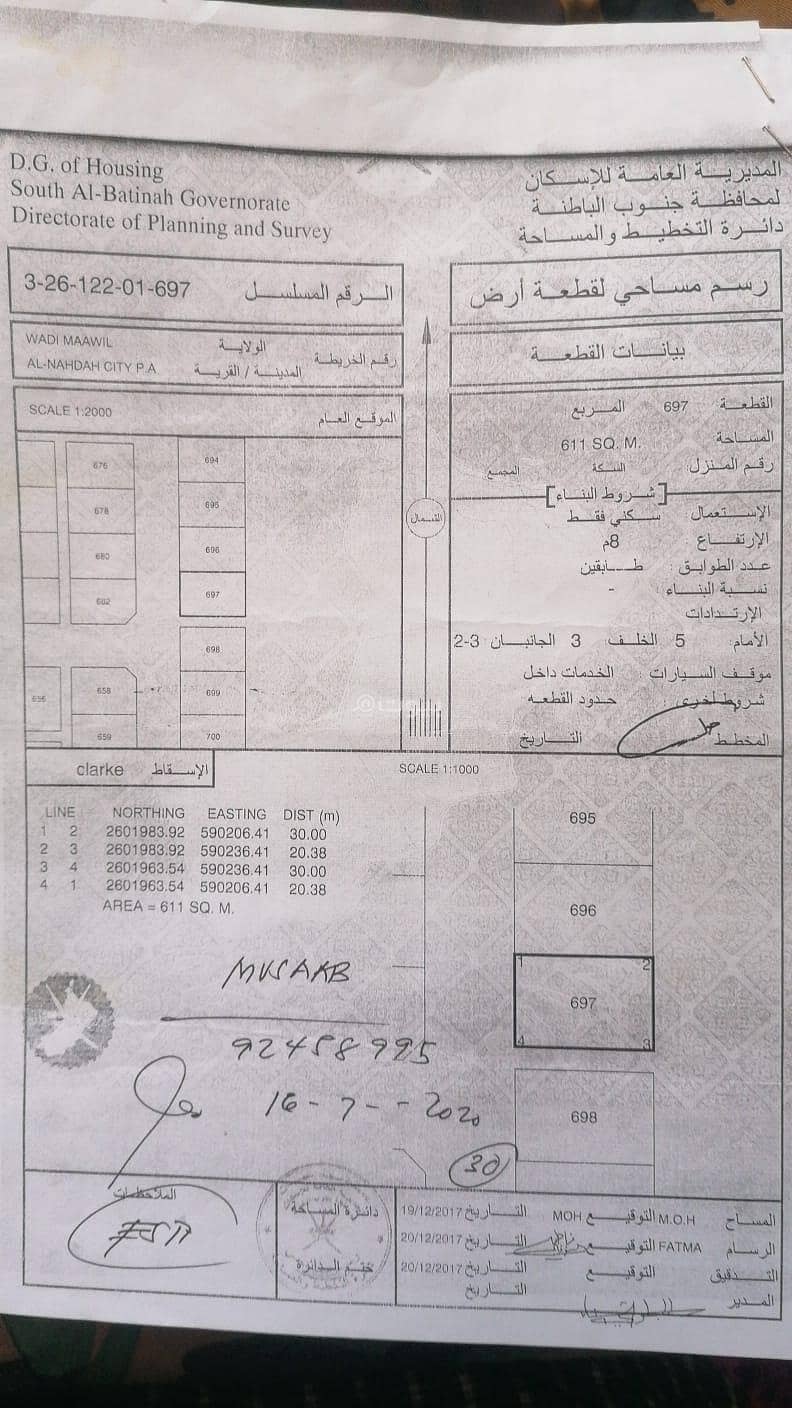 D.G. of Housing
South Al-Batinah Governorate
Directorate of Planning and Survey
المديرية العامة للإسكان
لمحافظة جنوب الباطنة
دائرة التخطيط والمساحة
3-26-122-01-697 الرقم المسلسل
رسم مساحي لقطعة أرض
WADI MAAWIL الولاية
AL-NAHDAH CITY P.A المدينة / القرية
رقم الخريطة
بيانات القطعة
SCALE 1:2000 الموقع العام
القطعة 697 المربع
المساحة 611 SQ. M.
رقم المنزل السكة المجمع
[شروط البناء]
الإستعمال سكني فقط
الإرتفاع 8م
عدد الطوابق : طابقين
نسبة البناء : -
الإرتدادات
الأمام: 5 الخلف: 3 الجانبان 3-2
موقف السيارات : الخدمات داخل
شروط أخرى حدود القطعه
المخطط التاريخ
676
678
680
682
658
659
656
694
695
696
697
698
699
700
الشمال
clarke الإسقاط
SCALE 1:1000
LINE NORTHING EASTING DIST (m)
1 2 2601983.92 590206.41 30.00
2 3 2601983.92 590236.41 20.38
3 4 2601963.54 590236.41 30.00
4 1 2601963.54 590206.41 20.38
AREA = 611 SQ. M.
695
696
1 2
697
4 3
698
MUSAAB
92458995
16-7--2020
30
الملاحظات
دائرة المساحة
ختم الدائرة
المساح M.O.H التوقيع MOH التاريخ 19/12/2017
الرسام FATMA التوقيع التاريخ 20/12/2017
التدقيق التوقيع التاريخ 20/12/2017
المدير التاريخ